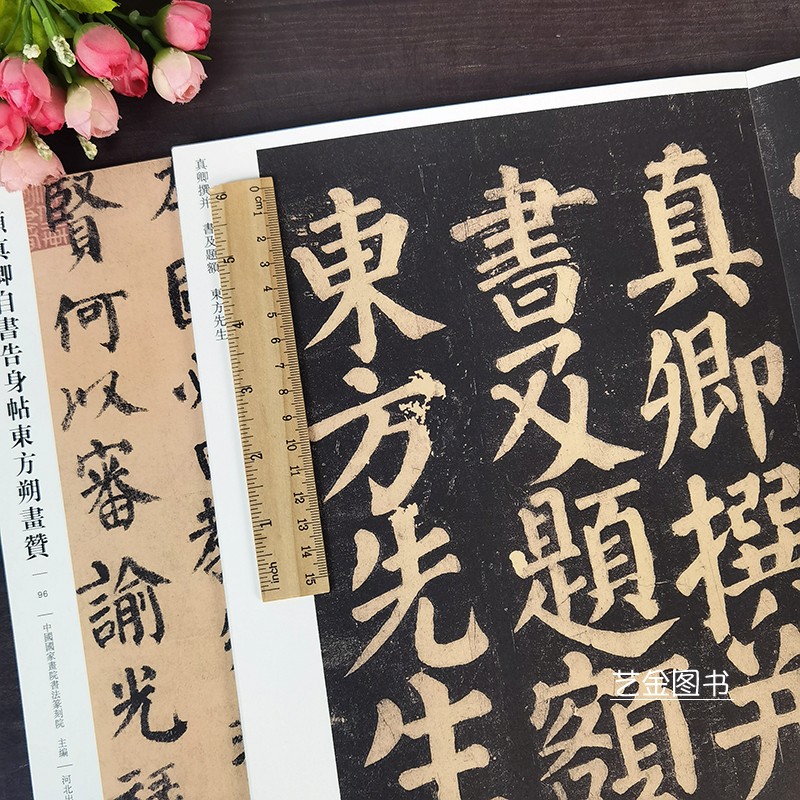 真卿撰并
書及題額
東方先生
真卿撰并 書及題額 東方先生
賢何以審諭光
真卿自書告身帖東方朔畫贊
96
中國國家畫院書法篆刻院 主編
河北出
0 cm1 2 3 4 5 6 7 8 9 10 11 12 13 14 15
6 5 4 3 2 1 inch
艺金图书